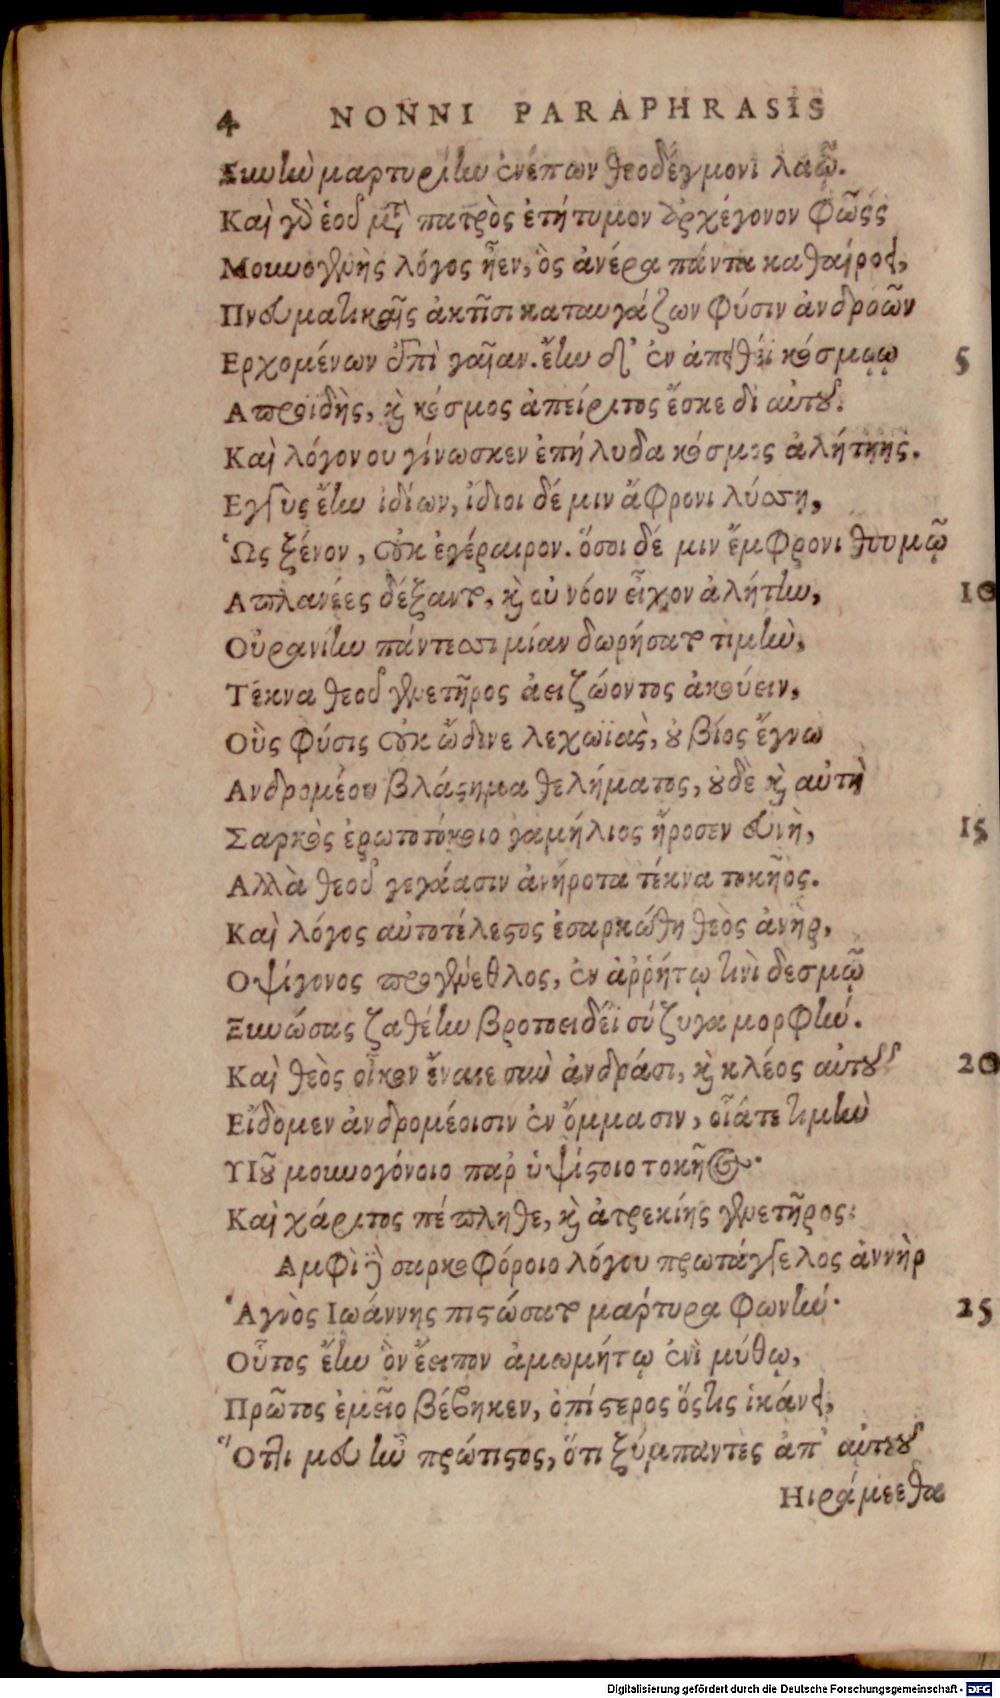 4 NONNI PARAPHRASIS
Ξυνὴν μαρτυρίην ἐνέπων θεοδέγμονι λαῷ.
Καὶ γὰρ ἑοῦ μετὰ πατρὸς ἐτήτυμον ἀρχέγονον φῶς
Μουνογενὴς λόγος ἦεν, ὃς ἀνέρα πάντα καθαίρει,
Πνευματικαῖς ἀκτῖσι καταυγάζων φύσιν ἀνδρῶν
Ερχομένων ἐπὶ γαῖαν. ἔην δ' ἐν ἀπειθέϊ κόσμῳ 5
Απροϊδὴς, καὶ κόσμος ἀπείριτος ἔσκε δι αὐτοῦ.
Καὶ λόγον ου γίνωσκεν ἐπήλυδα κόσμος ἀλήτης.
Εγγὺς ἔην ἰδίων, ἴδιοι δέ μιν ἄφρονι λύσσῃ,
Ὡς ξένον, οὐκ ἐγέραιρον. ὅσοι δέ μιν ἔμφρονι θυμῷ
Απλανέες δέξαντο, καὶ οὐ νόον εἶχον ἀλήτην, 10
Οὐρανίην πάντεσσι μίαν δωρήσατο τιμὴν,
Τέκνα θεοῦ γενετῆρος ἀειζώοντος ἀκούειν,
Οὓς φύσις οὐκ ὤδινε λεχωϊὰς, οὐ βίος ἔγνω
Ανδρομέου βλάστημα θελήματος, οὐδὲ καὶ αὐτὴ
Σαρκὸς ἐρωτοτόκοιο γαμήλιος ἤροσεν εὐνὴ, 15
Αλλὰ θεοῦ γεγάασιν ἀνήροτα τέκνα τοκῆος.
Καὶ λόγος αὐτοτέλεστος ἐσαρκώθη θεὸς ἀνὴρ,
Οψίγονος προγένεθλος, ἐν ἀῤῥήτῳ τινὶ δεσμῷ
Ξυνώσας ζαθέην βροτοειδέϊ σύζυγα μορφήν.
Καὶ θεὸς οἶκον ἔναιε σὺν ἀνδράσι, καὶ κλέος αὐτοῦ 20
Εἴδομεν ἀνδρομέοισιν ἐν ὄμμασιν, οἷάτε τιμὴν
Υἱοῦ μουνογόνοιο παρ ὑψίστοιο τοκῆος.
Καὶ χάριτος πέπληθε, καὶ ἀτρεκίης γενετῆρος.
Αμφὶ δὲ σαρκοφόροιο λόγου πρωτάγγελος ἀννὴρ
Ἁγνὸς Ιωάννης πιστώσατο μάρτυρα φωνήν. 25
Οὗτος ἔην ὃν ἔειπον ἀμωμήτῳ ἐνὶ μύθῳ,
Πρῶτος ἐμεῖο βέβηκεν, ὀπίστερος ὅςτις ἱκάνει,
Ὅττι μευ ἦν πρώτιστος, ὅτι ξύμπαντες ἀπ' αὐτοῦ
Ηιράμεεθα
Digitalisierung gefördert durch die Deutsche Forschungsgemeinschaft - DFG